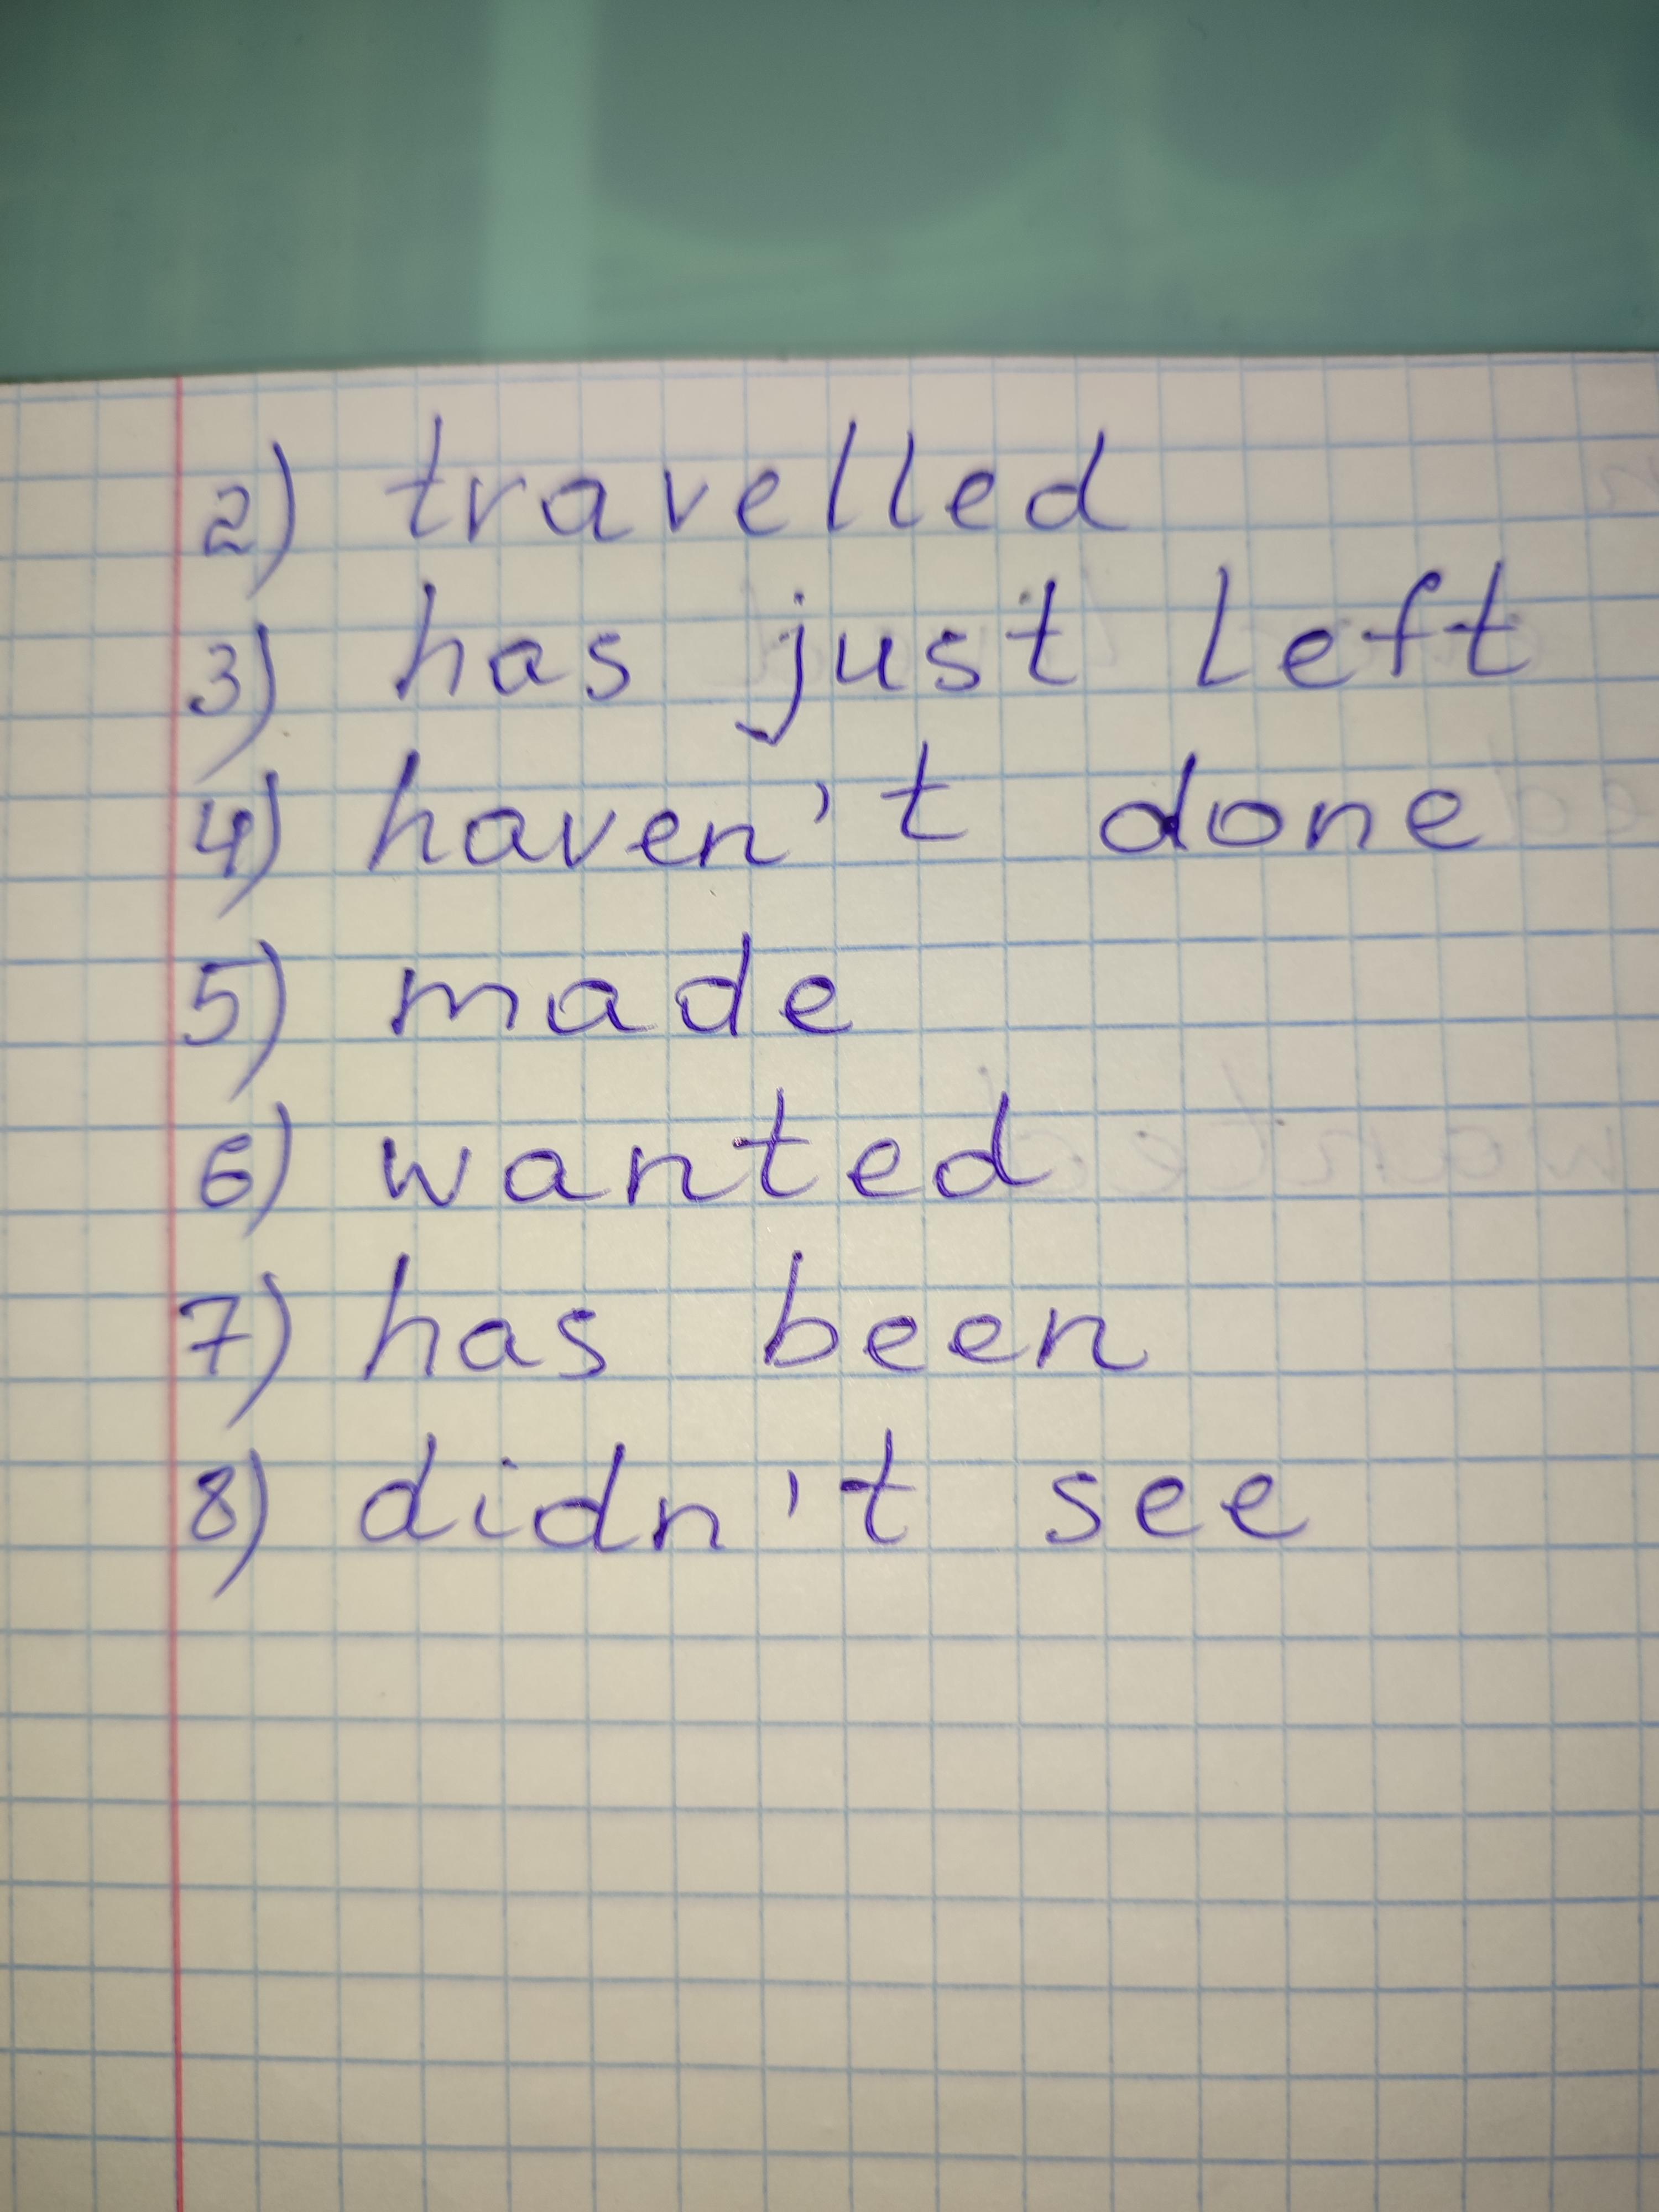 2) travelled
3) has just left
4) haven't done
5) made
6) wanted
7) has been
8) didn't see